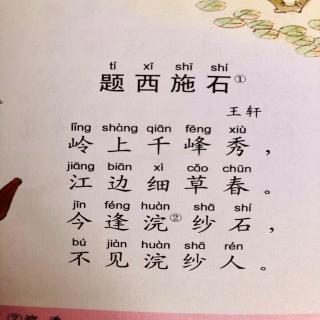 tí xī shī shí
题西施石①
王轩
lǐng shàng qiān fēng xiù
岭上千峰秀，
jiāng biān xì cǎo chūn
江边细草春。
jīn féng huàn shā shí
今逢浣②纱石，
bú jiàn huàn shā rén
不见浣纱人。